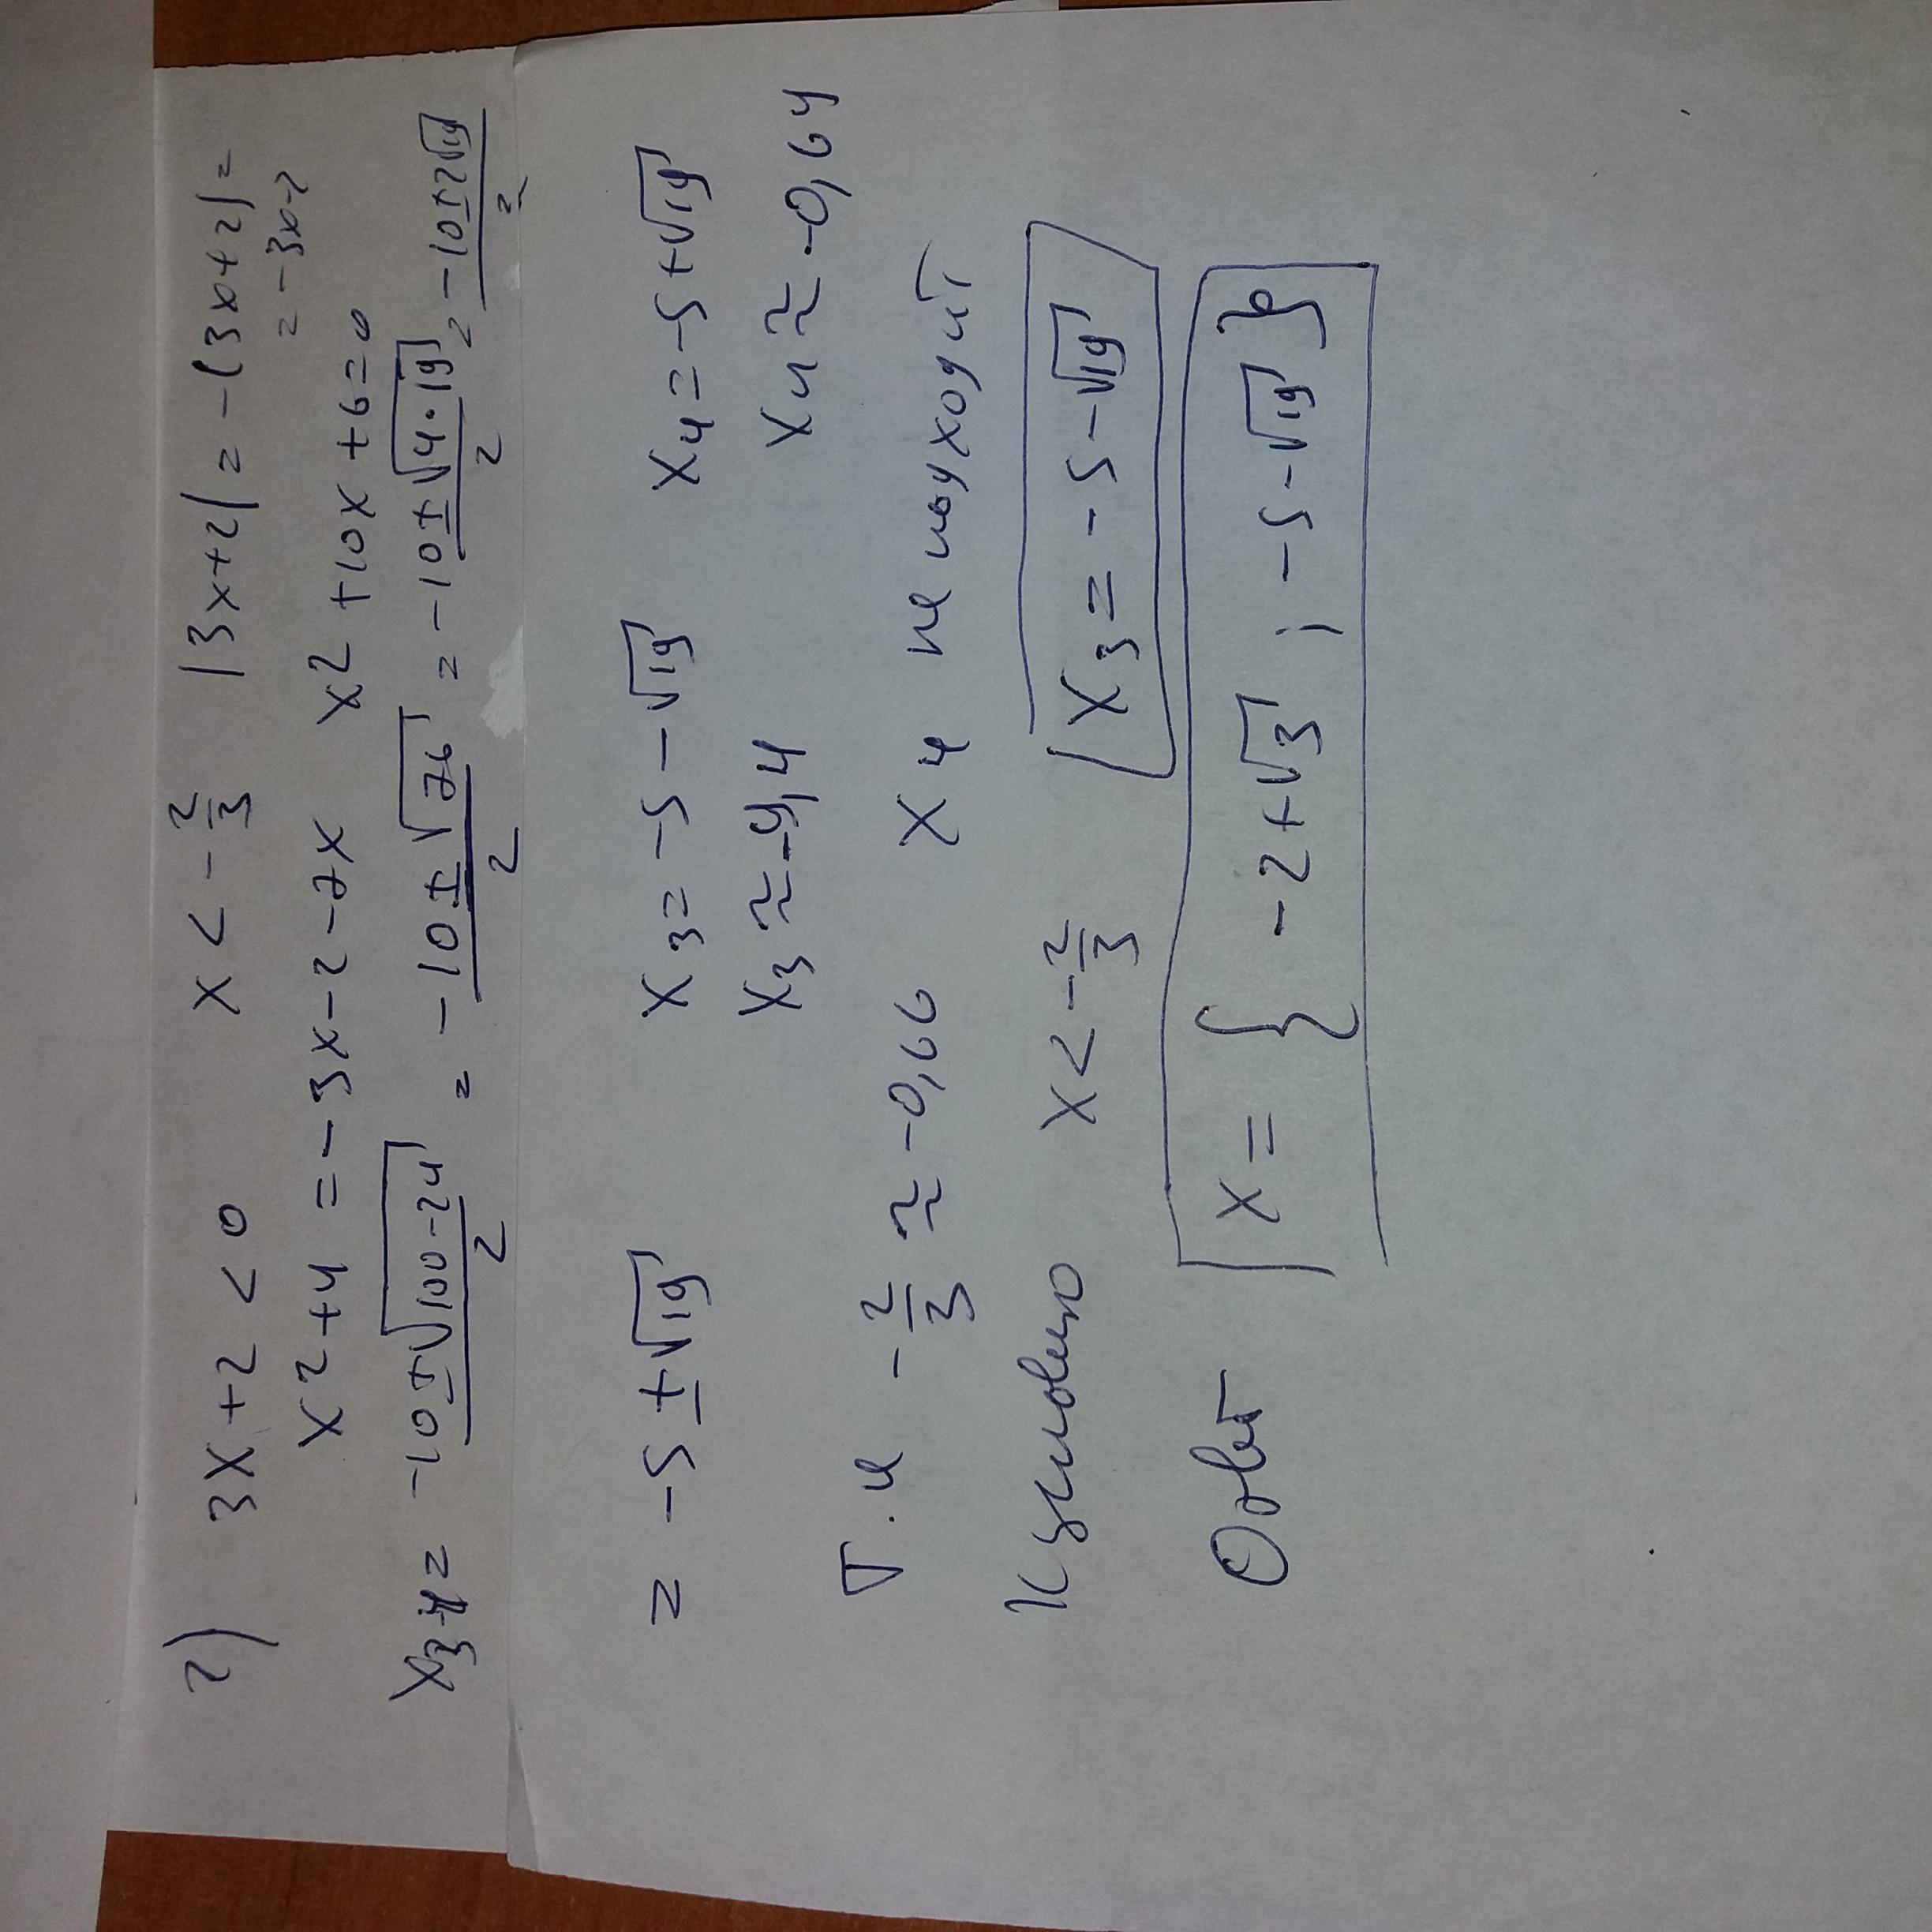 2) 3x+2<0 x<-2/3 |3x+2|=-(3x+2)=
=-3x-2
x2+4=-3x-2-7x x2+10x+6=0
x3,4= -10±√100-24/2 = -10±√76/2 = -10±√4·19/2 = -10±2√19/2
= -5±√19 x3=-5-√19 x4=-5+√19
x3≈-9,4 x4≈-0,64
Т.к -2/3≈-0,66 x4 не подходит
к условию x<-2/3 x3=-5-√19
Ответ x={-2+√3; -5-√19}